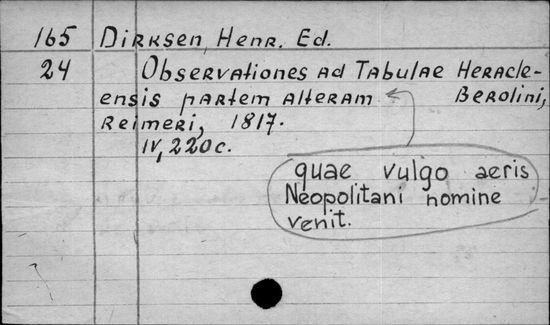 165 Dirksen, Henr. Ed.
24 Observationes ad Tabulae Heracle-
ensis partem alteram Berolini,
Reimeri, 1817.
IV, 220c.
quae vulgo aeris
Neopolitani nomine
venit.